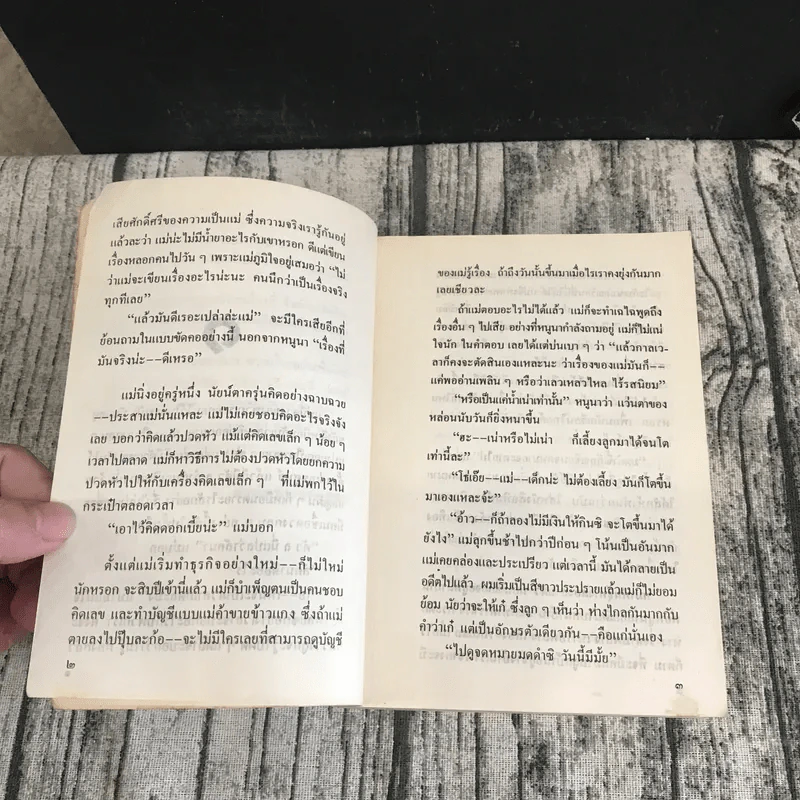 เสียศักดิ์ศรีของความเป็นแม่ ซึ่งความจริงเรารู้กันอยู่
แล้วละว่า แม่น่ะไม่มีน้ำยาอะไรกับเขาหรอก ดีแต่เขียน
เรื่องหลอกคนไปวัน ๆ เพราะแม่ภูมิใจอยู่เสมอว่า “ไม่
ว่าแม่จะเขียนเรื่องอะไรน่ะนะ คนนึกว่าเป็นเรื่องจริง
ทุกทีเลย”
“แล้วมันดีเรอะเปล่าล่ะแม่” จะมีใครเสียอีกที่
ย้อนถามในแบบขัดคออย่างนี้ นอกจากหนูนา “เรื่องที่
มันจริงน่ะ--ดีเหรอ”
แม่นิ่งอยู่ครู่หนึ่ง นัยน์ตาครุ่นคิดอย่างฉาบฉวย
--ประสาแม่นั่นแหละ แม่ไม่เคยชอบคิดอะไรจริงจัง
เลย บอกว่าคิดแล้วปวดหัว แม้แต่คิดเลขเล็ก ๆ น้อย ๆ
เวลาไปตลาด แม่ก็หาวิธีการไม่ต้องปวดหัวโดยยกความ
ปวดหัวไปให้กับเครื่องคิดเลขเล็ก ๆ ที่แม่พกไว้ใน
กระเป๋าตลอดเวลา
“เอาไว้คิดดอกเบี้ยน่ะ” แม่บอก
ตั้งแต่แม่เริ่มทำธุรกิจอย่างใหม่--ก็ไม่ใหม่
นักหรอก จะสิบปีเข้านี่แล้ว แม่ก็บำเพ็ญตนเป็นคนชอบ
คิดเลข และทำบัญชีแบบแม่ค้าขายข้าวแกง ซึ่งถ้าแม่
ตายลงไปปุ๊บละก้อ--จะไม่มีใครเลยที่สามารถดูบัญชี
๒
ของแม่รู้เรื่อง ถ้าถึงวันนั้นขึ้นมาเมื่อไรเราคงยุ่งกันมาก
เลยเชียวละ
ถ้าแม่ตอบอะไรไม่ได้แล้ว แม่ก็จะทำเฉไฉพูดถึง
เรื่องอื่น ๆ ไปเสีย อย่างที่หนูนากำลังถามอยู่ แม่ก็ไม่แน่
ใจนัก ในคำตอบ เลยได้แต่บ่นเบา ๆ ว่า “แล้วกาลเว-
ลาก็คงจะตัดสินเองแหละนะ ว่าเรื่องของแม่มันก็--
แค่พออ่านเพลิน ๆ หรือว่าเลวเหลวไหล ไร้รสนิยม”
“หรือเป็นแค่น้ำเน่าเท่านั้น” หนูนาว่า แว่นตาของ
หล่อนนับวันก็ยิ่งหนาขึ้น
“ฮะ--เน่าหรือไม่เน่า ก็เลี้ยงลูกมาได้จนโต
เท่านี้ละ”
“โช่เอ๊ย--แม่--เด็กน่ะ ไม่ต้องเลี้ยง มันก็โตขึ้น
มาเองแหละจ้ะ”
“อ้าว--ก็ถ้าลองไม่มีเงินให้กินซิ จะโตขึ้นมาได้
ยังไง” แม่ลุกขึ้นช้าไปกว่าปีก่อน ๆ โน้นเป็นอันมาก
แม่เคยคล่องและประเปรียว แต่เวลานี้ มันได้กลายเป็น
อดีตไปแล้ว ผมเริ่มเป็นสีขาวประปรายแล้วแม่ก็ไม่ยอม
ย้อม นัยว่าจะให้เก๋ ซึ่งลูก ๆ เห็นว่า ห่างไกลกันมากกับ
คำว่าเก๋ แต่เป็นอักษรตัวเดียวกัน--คือแก่นั่นเอง
“ไปดูจดหมายมดดำซิ วันนี้มีมั้ย”
๓